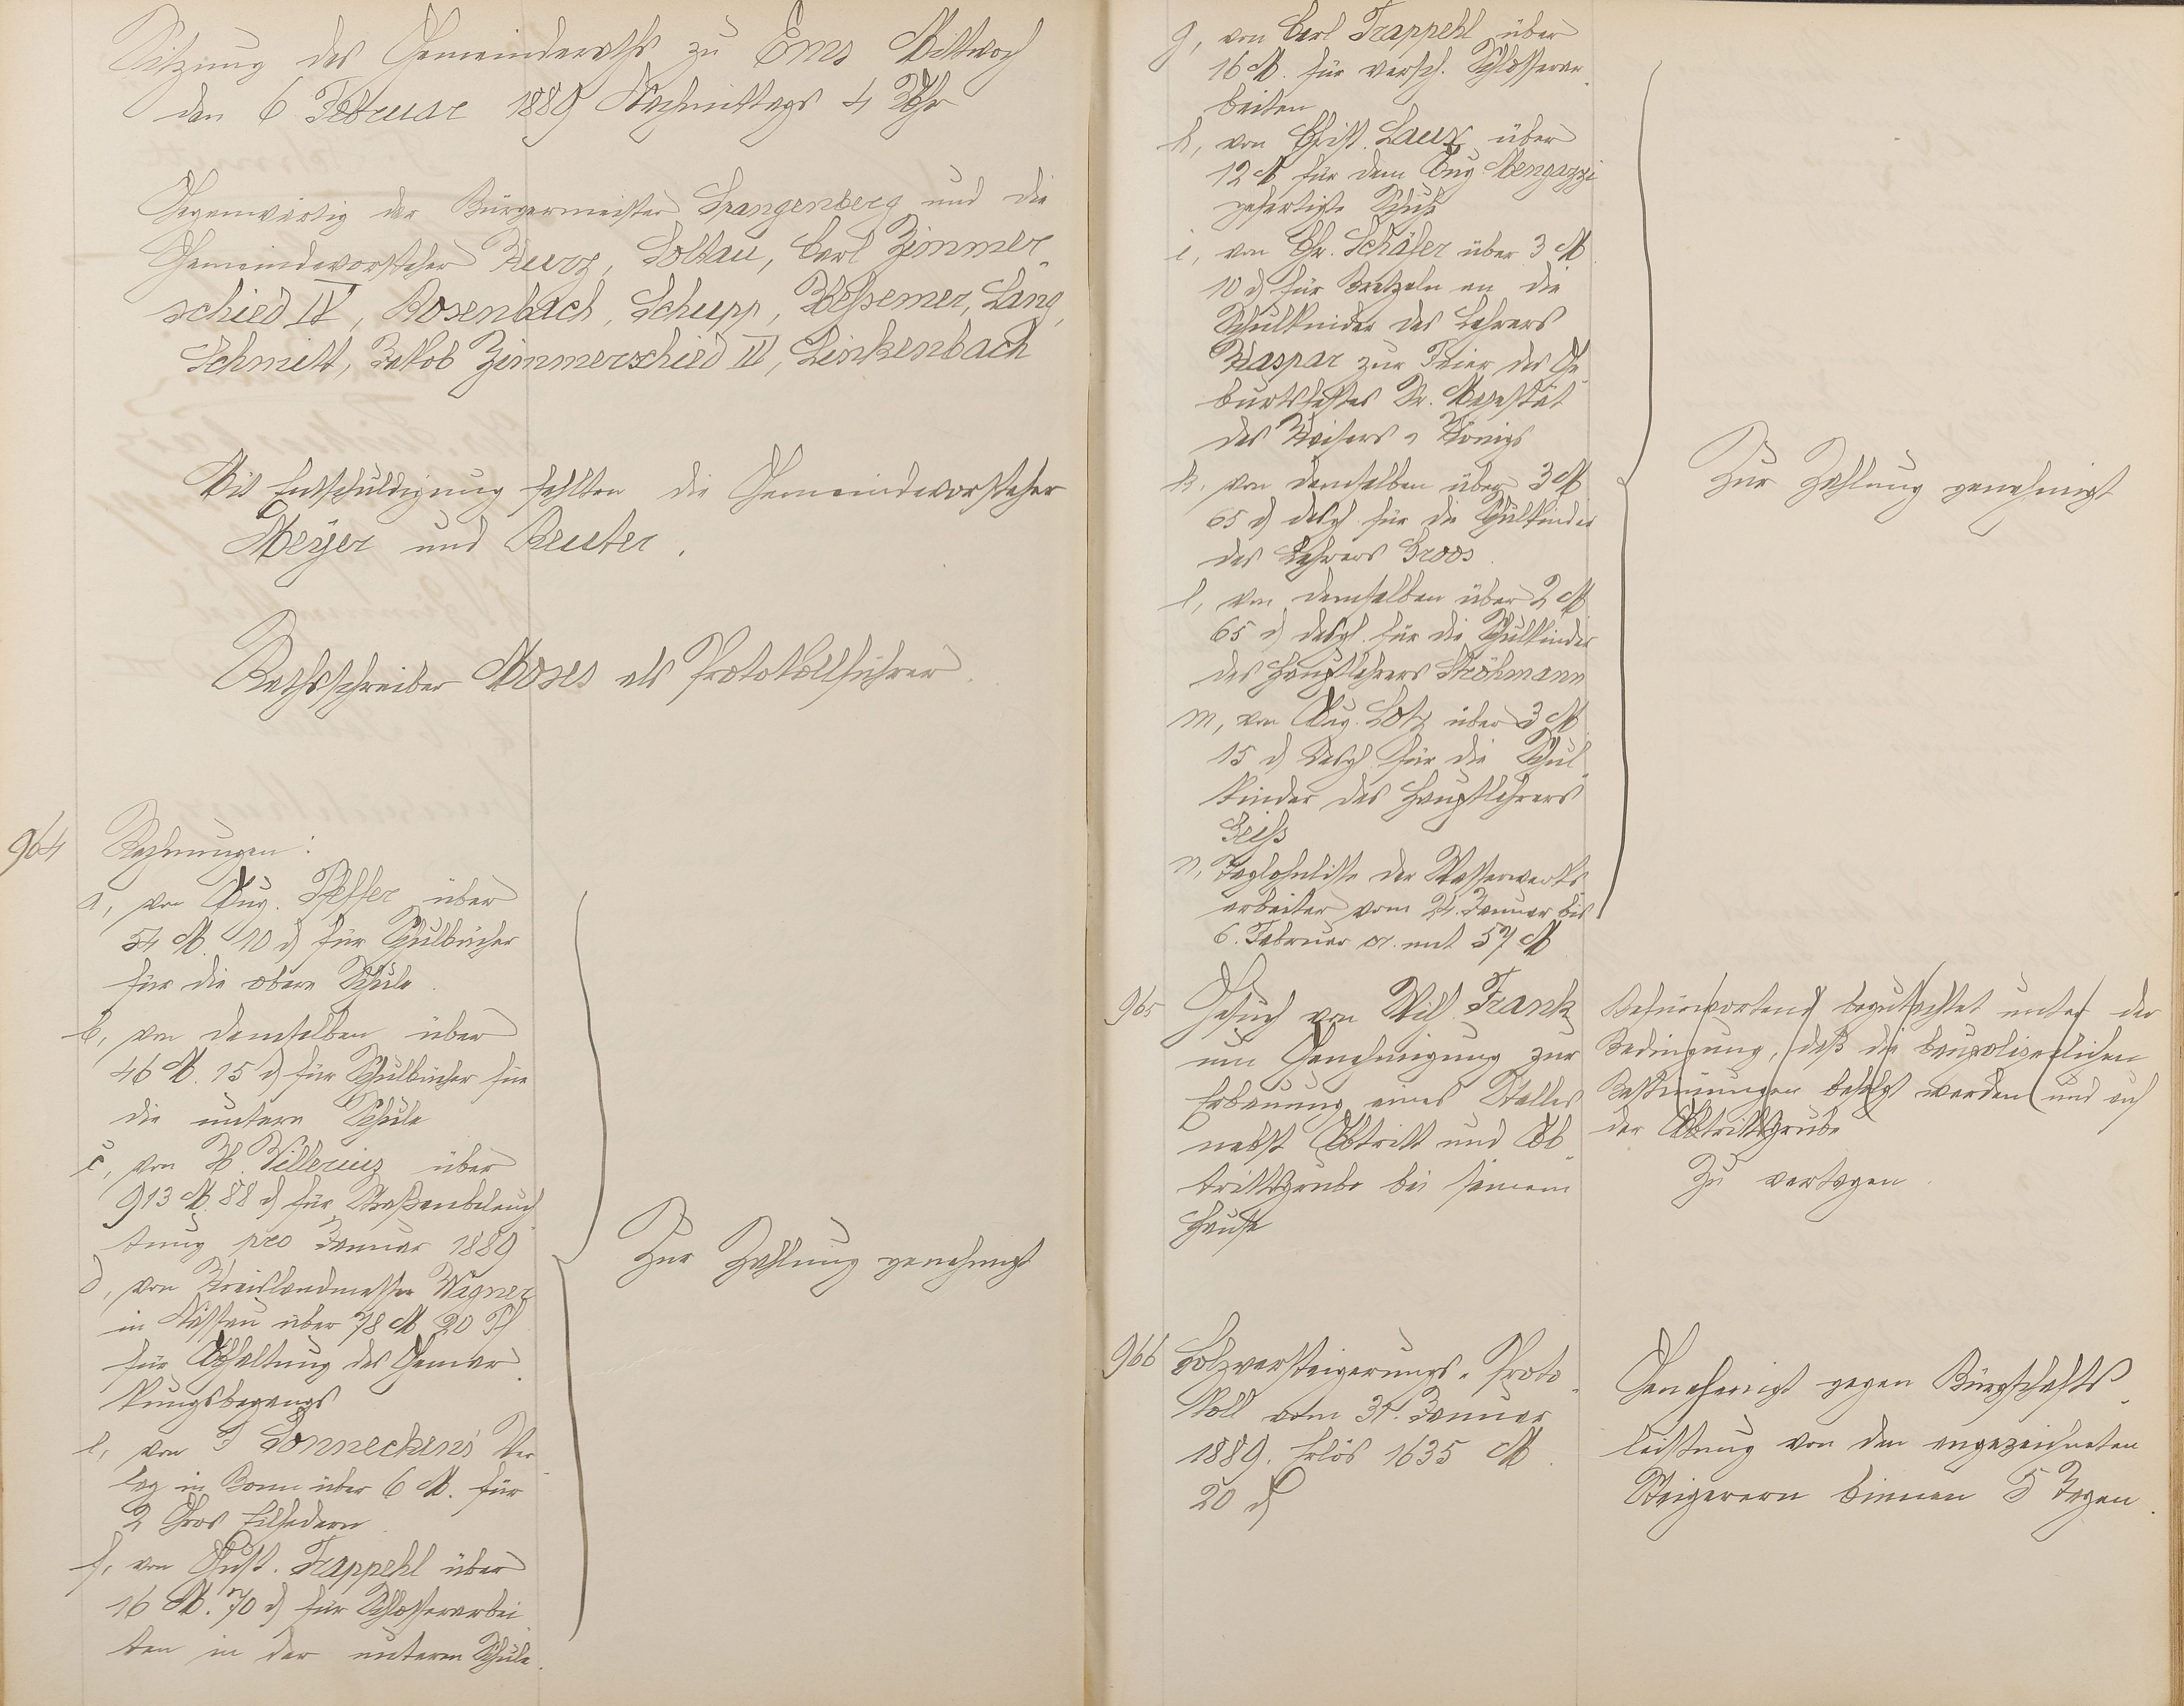 Sitzung des Gemeinderaths zu Ems Mittwoch
den 6 Februar 1889 Nachmittags 4 Uhr
Gegenwärtig der Bürgermeister Spangenberg und die
Gemeindevorsteher Kurz, Soltau, Carl Zimmer-
schied IV, Rosenbach, Schupp, Lang,
Schmitt, Jakob Zimmerschied III, Linkenbach
Mit Entschuldigung fehlten die Gemeindevorsteher
Meÿer und Reuter.
Rathsschreiber Moses als Protokollführer.
964
Rechnungen:
a, von Aug. Pfeffer über
54 M. 10 d für Schulbücher
für die obere Schule.
b, von demselben über
46 M. 15 d für Schulbücher für
die untere Schule
c, von H. Villerius über
913 M. 88 d für Straßenbeleuch
tung pro Januar 1889
d, von Kreislandmesser Wagner
in Nassau über 78 M 20 Pf
für Abhaltung des Gemar-
kungsbegangs
e, von F Sonnecken's Ver-
lag in Bonn über 6 M. für
2 Gros Eilfedern
f, von Gust. Trappehl über
16 M. 70 d für Schlosserarbei-
ten in der unteren Schule.
Zur Zahlung genehmigt
g, von Carl Trappehl über
16 M. für versch. Schlosserar-
beiten
h, von Christ. Laux über
12 M für dem Aug Mengazzi
gefertigte Schuhe
i, von Chr. Schäfer über 3 M
10 d für Bretzeln an die
Schulkinder des Lehrers
Kaspar zur Feier des Ge-
burtsfestes Sr. Majestät
des Kaisers u Königs
k, von demselben über 3 M
65 d desgl für die Schulkinder
des Lehrers Groos.
l, von demselben über 2 M
65 d desgl. für die Schulkinder
des Hauptlehrers Ströhmann
m, von Aug. Lotz über 3 M
15 d desgl für die Schul-
kinder des Hauptlehrers
Geiß
n, Taglohnliste der Wasserwerks-
arbeiter vom 24. Januar bis
6. Februar cr. mit 57 M
Zur Zahlung genehmigt
965
Gesuch von Wilh. Frank
um Genehmigung zur
Erbauung eines Stalles
nebst Abtritt und Ab-
trittsgrube bei seinem
Hause
Befürwortend begutachtet unter der
Bedingung, daß die baupolizeilichen
Bestimmungen befolgt werden und auch
der Abtrittsgrube
Zu vertagen.
966
Holzversteigerungs-Proto-
koll vom 31. Januar
1889. Erlös 1635 M.
20 d
Genehmigt gegen Bürgschafts-
leistung von den angezeichneten
Steigerern binnen 5 Tagen.